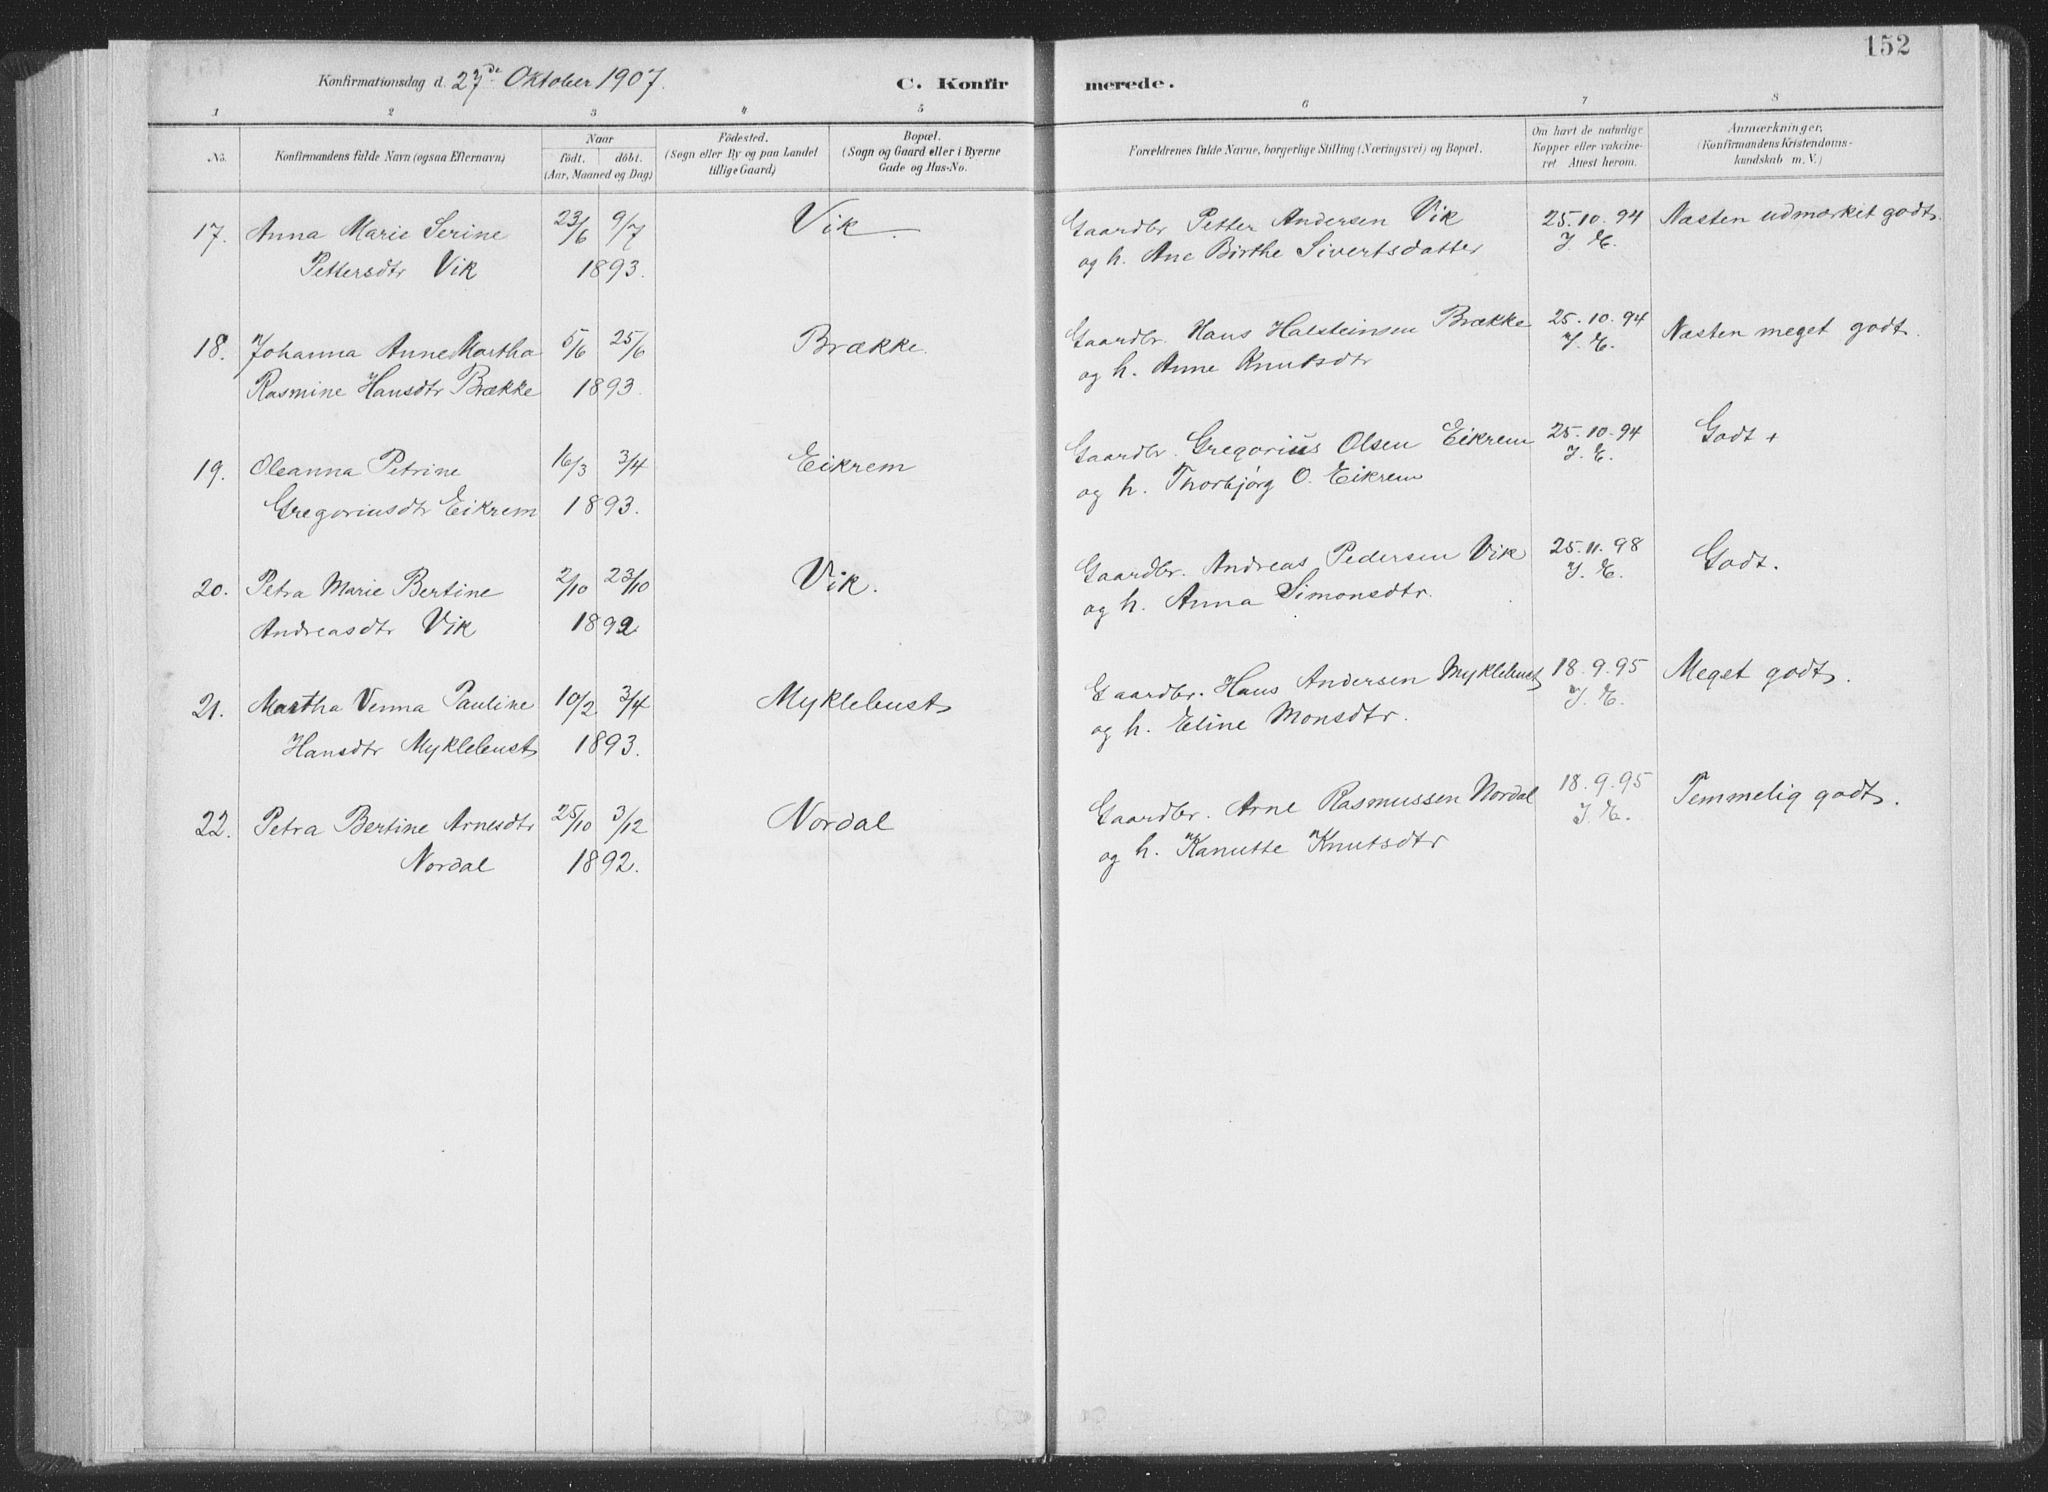 152
Konfirmationsdag d. 27de Oktober 1907. C. Konfirmerede.
1 2 3 4 5 6 7 8
No. Konfirmandens fulde Navn (ogsaa Efternavn) Naar født. døbt. (Aar, Maaned og Dag) Fødested. (Sogn eller By og paa Landet tillige Gaard) Bopæl. (Sogn og Gaard eller i Byerne Gade og Hus-No. Forældrenes fulde Navne, borgerlige Stilling (Næringsvei) og Bopæl. Om havt de naturlige Kopper eller vakcineret Attest herom. Anmærkninger, (Konfirmandens Kristendomskundskab m. V.)
17. Anna Marie Serine 23/6 9/7 Vik. Gaardbr Petter Andersen Vik 25.10.94 Næsten udmærket godt.
Pettersdtr Vik 1893. og h. Ane Birthe Sivertsdatter J. E.
18. Johanna Anne Martha 5/6 25/6 Brække. Gaardbr. Hans Halsteinsen Brække 25.10.94 Næsten meget godt.
Rasmine Hansdtr Brække 1893. og h. Anne Knutsdtr J. E.
19. Oleanna Petrine 16/3 3/4 Eikrem Gaardbr. Gregorius Olsen Eikrem 25.10.94 Godt +
Gregoriusdtr Eikrem 1893. og h. Thorbjørg O. Eikrem J. E.
20. Petra Marie Bertine 2/10 23/10 Vik. Gaardbr. Andreas Pedersen Vik 25.11.98 Godt.
Andreasdtr Vik 1892 og h. Anna Simonsdtr. J. E.
21. Martha Venna Pauline 10/2 3/4 Myklebust Gaardbr. Hans Andersen Myklebust 18.9.95 Meget godt.
Hansdtr Myklebust 1893. og h. Eline Monsdtr. J. E.
22. Petra Bertine Arnesdtr 25/10 3/12 Nordal Gaardbr. Arne Rasmussen Nordal 18.9.95 Temmelig godt.
Nordal 1892. og h. Kanutte Knutsdtr J. E.